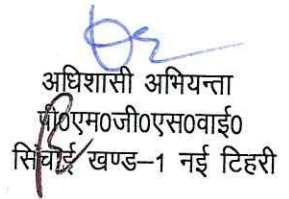 अधिशासी अभियन्ता
पी0एम0जी0एस0वाई0
सिंचाई खण्ड–1 नई टिहरी